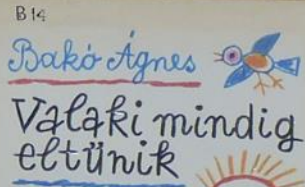 B14
Bakó Ágnes
Valaki mindig
eltűnik